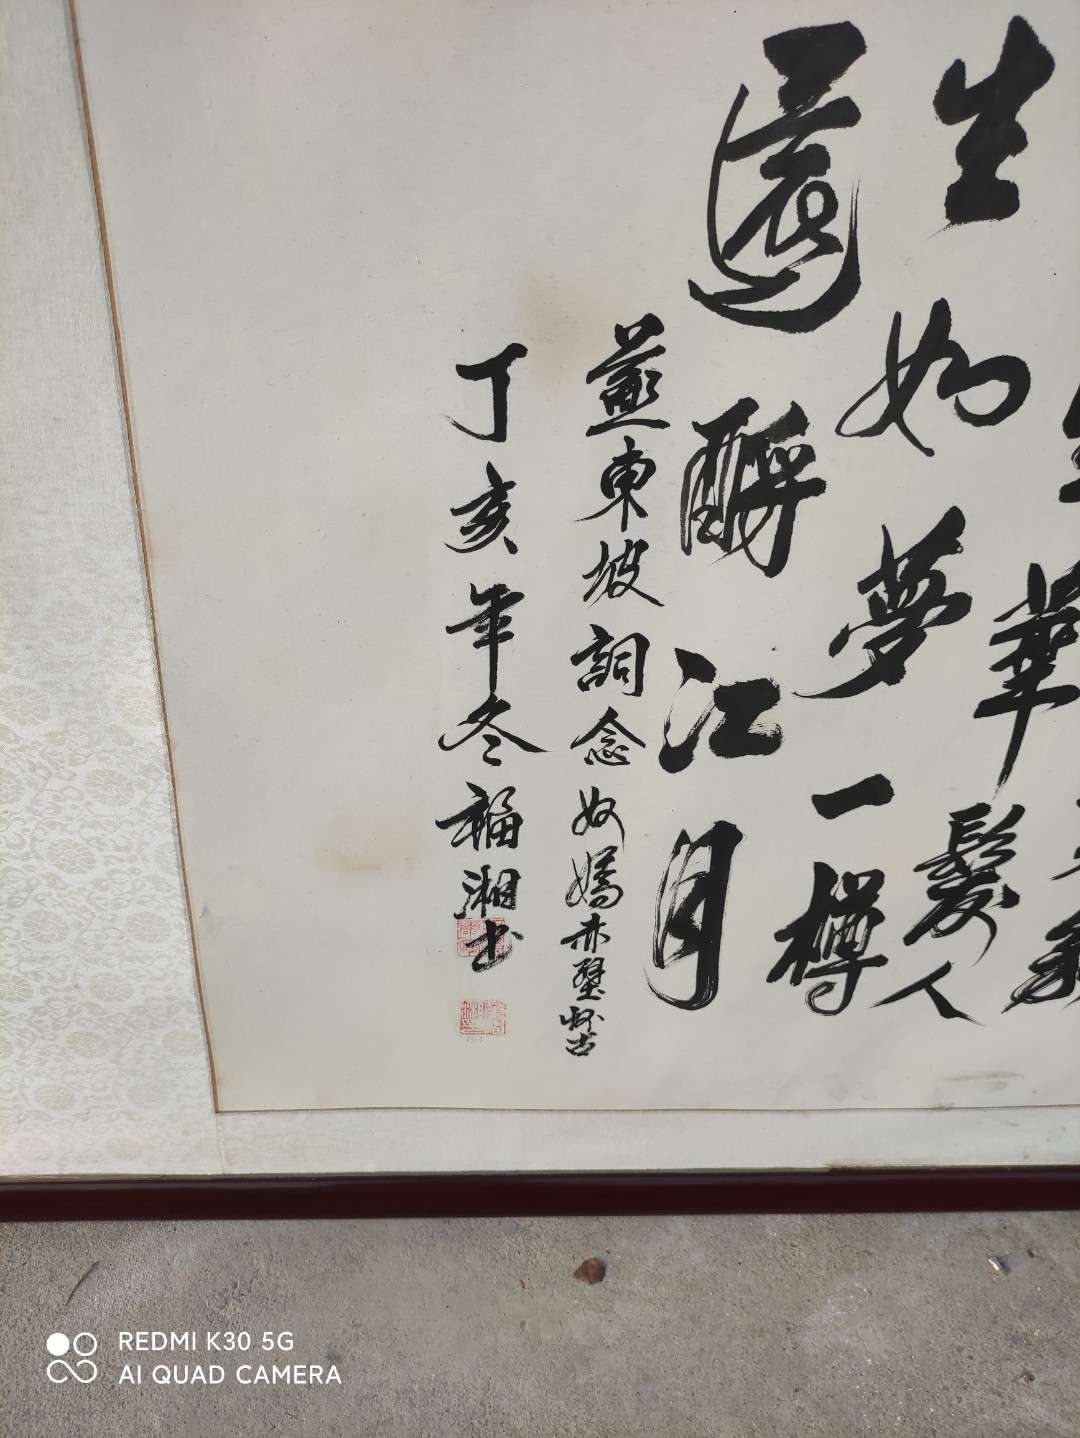 華髮人
生如夢一樽
還酹江月
蘇東坡詞念奴嬌赤壁懷古
丁亥年冬福湘书
REDMI K30 5G
AI QUAD CAMERA